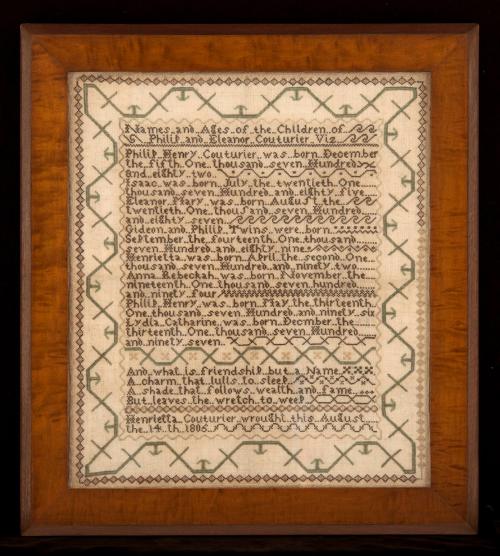 Names and Ages of the Children of
Philip and Eleanor Couturier Viz
Philip Henry Couturier was born December
the fifth One thousand seven Hundred
and eighty two
Isaac was born July the twentieth One
thousand seven Hundred and eighty five
Eleanor Mary was born August the
twentieth One thousand seven Hundred
and eighty seven
Gideon and Philip Twins were born
September the fourteenth One thousand
seven Hundred and eighty nine
Henrietta was born April the second One
thousand seven Hundred and ninety two
Anna Rebeckah was born November the
nineteenth One thousand seven hundred
and ninety Four
Philip Henry was born May the thirteenth
One thousand seven Hundred and ninety six
Lydia Catharine was born Decmber the
thirteenth One thousand seven Hundred
and ninety seven
And what is friendship but a Name
A charm that lulls to sleep
A shade that follows wealth and fame
But leaves the wretch to weep
Henrietta Couturier wrought this August
the 14 th 1805